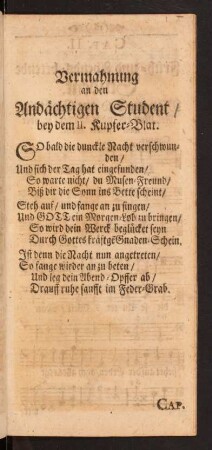 Vermahnung
an den
Andächtigen Student /
bey dem II. Kupfer-Blat.
SO bald die dunckle Nacht verschwun-
den /
Und sich der Tag hat eingefunden /
So warte nicht / du Musen-Freund /
Biß dir die Sonn ins Bette scheint /
Steh auf / und fange an zu singen /
Und GOTT ein Morgen-Lob zu bringen /
So wird dein Werck beglücket seyn
Durch Gottes kräftge Gnaden-Schein.
Ist denn die Nacht nun angetreten /
So fange wieder an zu beten /
Und leg dein Abend-Opffer ab /
Drauff ruhe sanfft im Feder-Grab.
CAP.